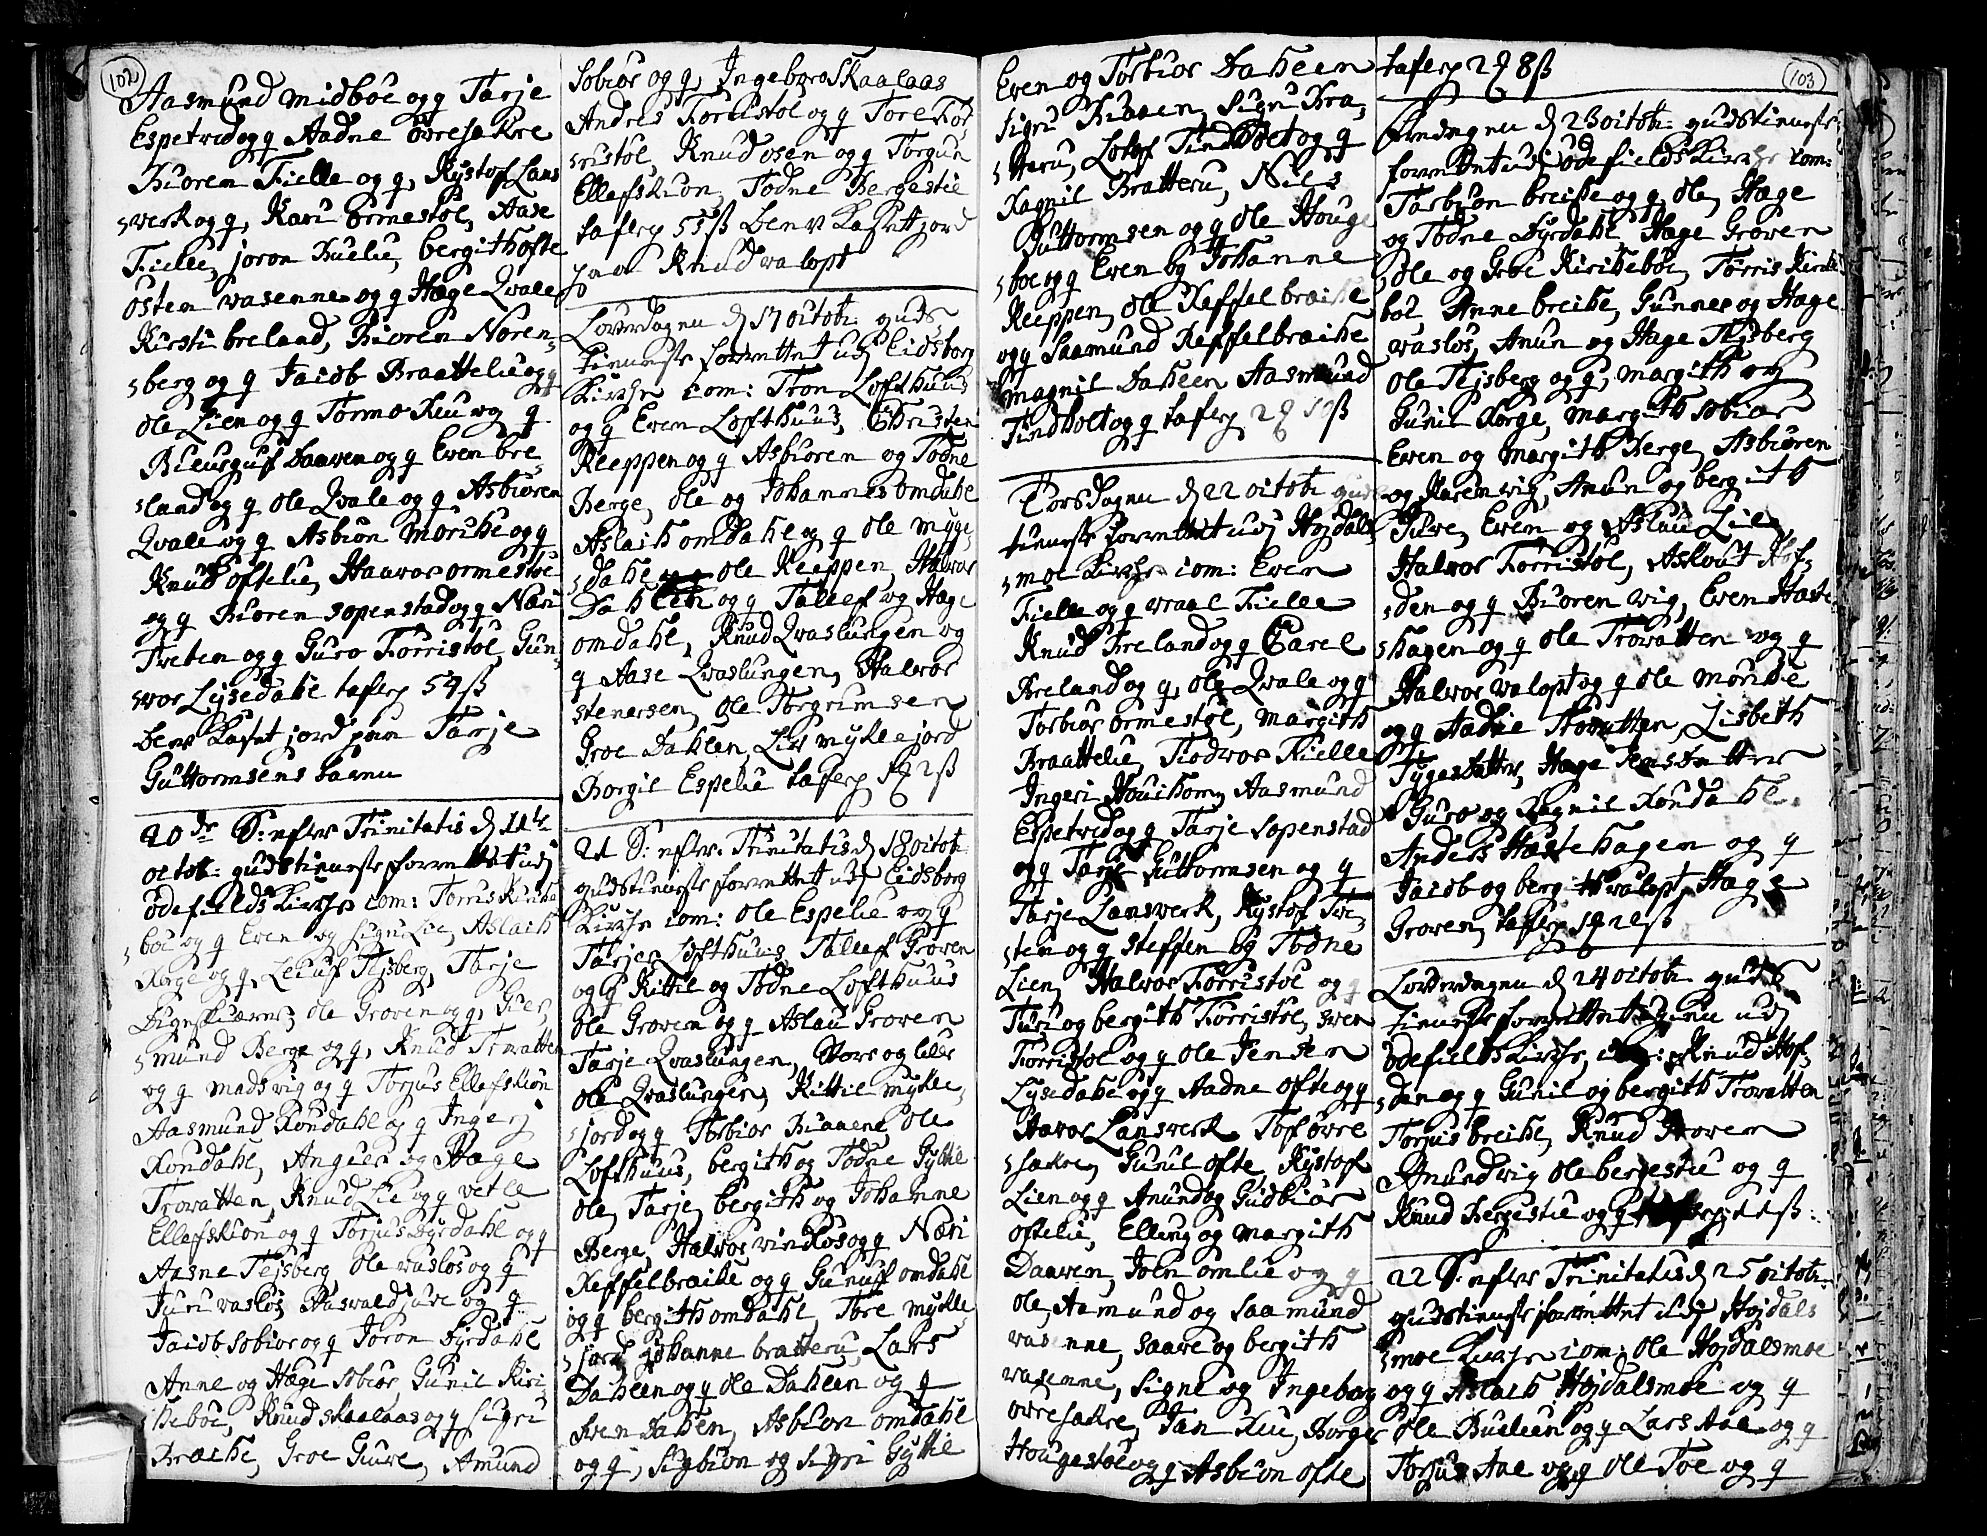 102
Aasmund Midböe og q Tarje
Espetvedogq Aadne övresakre
Biören Fielle og q, Rystof Lans
werk og q, Kari Ormestöl, Aase
Fielle, joron Buelie, bergith ofte
osten wasenne og q Hæge Qvale
Kirsti breland, Biören Noren
berg og q Jacob Braattelie og q
ole Lien og q Tormo Kui og q
Daaven og q Even bre
land og q ole Qvale og q Asbiören
Qvale og q Asbiön Moriche og q
Knud oftelie, Haavor ormestöl
og q Biören sopenstad og q Næri
Tveten og q Guro Förristöl, Gun
wor Lysedahl tafler 54ß
blev kast jord paa Tarje
Guttormsens barn
20de S: efter Trinitatis d 11te
octob: gudstieneste forrettet udj
ödefields Kirche com: Torris Kirke
böe og q Even og signe Lie, Aslach
Korge og q, Leiuf Tejsberg, Tarje
ole Groven og q, Gier
mund Berge og q, Knud Trovatten
og q Mads wig og q Torjus Ellefskiön
Aasmund Kondahl og q Ingerj
Kondahl, Anguen og Hæge
Trovatten, Knud Lie og q vetle
Ellefskion og q Torjus Dyrdahl og q
Aasne Tejsberg ole waslos og q
Juri waslos, Aaswald jure og q
Jacob sobior og q Joron Dyrdahl
Anne og Hæge sobior, Gunil Kiri
keböe, Knud skaalaas og q sigru
Breche, Groe Giure, Amund
sobior og q, Ingebor Skaalaas
Andres Forristöl og q Tore For
ristöl, Knud osen og q Torgun
Ellefskion, Todne Bergestie
tafler 55ß blev kastet jord
paa Knud walopt
Löverdagen d 17 octob: guds
tieneste forrettet udj Eidsborg
Kirche com: Tron Lofthuus
og q Even Lofthuus, Christen
Kleppen og q Asbiören og Todne
Berge, ole og Johannes omdahl
Aslach omdahl og q ole Myge
dahl ole Kleppen, Halvor
Dahlen og q Tallef og Hæge
omdahl, Knud Qvaslungen og
q Aase Qvaslungen, Halvor
stenersen, ole Torgrimsen
Groe Dahlen, Liv myklejord
Borgil Espelie tafler 1q 2ß
21 S: efter Trinitatis d 18 octob
gudstieneste forrettet udj Eidsborg
Kirche com: ole Espelie og q
Tarje Lofthuus, Tallef Groven
og q Kittil og Todne Lofthuus
ole Groven og q Aslau Groven
Tarje Qvaslungen, store og lille
ole Qvaslungen, Kittil mykle
jord og q Torbior Buaene ole
Lofthuus, bergith og Todne Gylke
ole, Tarje, bergith og Johanne
Berge, Halvor vindlos og q Næri
Keffelbraike og q Gunuf omdahl
og q bergith omdahl, Tore mykle
jord, johanne bratteru, Lars
Dahlen og q ole Dahlen og q
Sven Dahlen, Asbion omdahl
og q, Sigbion og sigri Gylke
Even og Torbior Daheen
sigri Buaen, sigru Bra
teru, Lolof Tindholt og q
Ragnil Bratteru, Niels
Guttormsen og q ole Houge
boe og q Even og Johanne
Kleppen, ole Keffelbraike
og q Saamund Keffelbraike
magnil Daheen Aasmund
Tindholt og q tafler 2q 10ß
Torsdagen d 22 octob guds
tieneste forrettet udj Hojdals
moe Kirche com: Even
Fielle og q wraal Fielle
Knud Breland og q Carel
Breland og q, ole Qvale og q
Torbior ormestöl, margith
Braattelie, Fiodvor Fielle
Ingeri Houchom, Aasmund
Espetved og q Tarje sopenstad
og q Tarje Guttormsen og q
Tarje Lanswerk, Kystof Tve
ten og q steffen og Todne
Lien, Halvor Forristöl og q
Turi og bergith Forristöl, Sven
Forristöl og q ole Jensen
Lysedahl og q Aadne ofte og q
Havor Lanswerk Tof övre
sakre, Gunil ofte, Kystof
Lien og q Anund og Gudbior
oftelie, Elling og margith
Daaven, Joen omlie og q
ole, Aamund og saamund
wasenne, saave og bergith
wasenne, signe og Ingebor
övresakre, Jan Kui, Borger
Hougestöl og q Asbion ofte
103
tafler 2q 8ß
fredagen d 23 octob: gudstieneste
forrettet udj ödefields Kirche com:
Torbion breike og q, ole, Hæge
og Todne Dyrdahl Hæge Groven
ole og Groe Kirikeböe, Torris Kirike
böe Anne breike, Gunner og Hæge
waslos, Anun og Hæge Tejsberg
ole Tejsberg og q, margith og
Gunil Korge, margith sobior
Even og margith Berge, Asbiören
og Karen wig, Anun og bergith
Jurve, Even og Aslau Lie
Halvor Forristöl, Aslout Hof
den og q Biören wig, Even Haate
hagen og q ole Trovatten og q
Halvor walopt og q ole monike
og q Aadne Trovatten, Lisbeth
Tygesdatter, Hæge Jensdatter
Guro og Ragnil Kondahl
Anders Haatehagen og q
Jacob og bergith walopt, Hæge
Groven, tafler 1q 21ß
Löverdagen d 24 octob guds
tieneste forrettet udj
ödefields Kirche, com: Knud Hof
den og q Gunil og bergith Trovatten
Torjus breike, Knud Groven
Amund wig ole bergestie og q
Knud bergestie og q
22 S: efter Trinitatis d 25 octob
gudstieneste forrettet udj Hojdals
moe Kirche com: ole Hojdalsmoe
og q Aslach Hojdalsmoe og q
ole Bueleen og q Lars Aae og q
Torjus Aae og q ole Toe og q